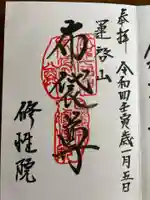 奉拝 令和四壬寅歳一月五日
運啓山
布袋尊
修性院